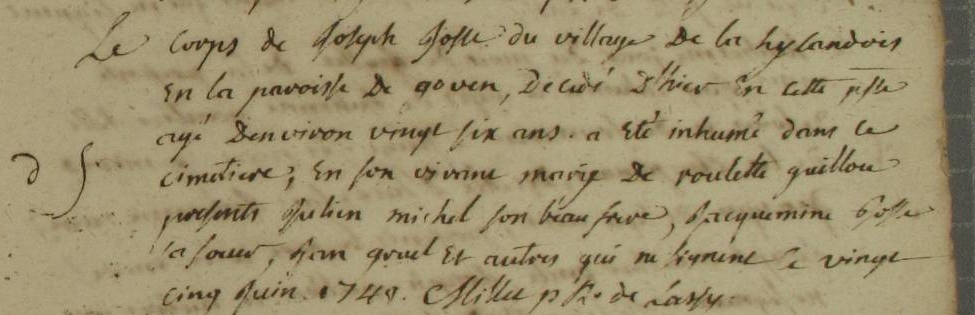 Le corps de Joseph Josse du village De la hylandois
En la paroisse De goven, Decidé D'hier En cette psse
agé Denviron vingt six ans. a Eté inhumé dans le
cimetiere, En son vivant mary De roulette guillou
d
presents Julien michel son beau frere, Jacquemine Josse
sa soeur, Jan gruel Et autres qui ne signent le vingt
cinq Juin. 1748. Millet p Re de Lassy.